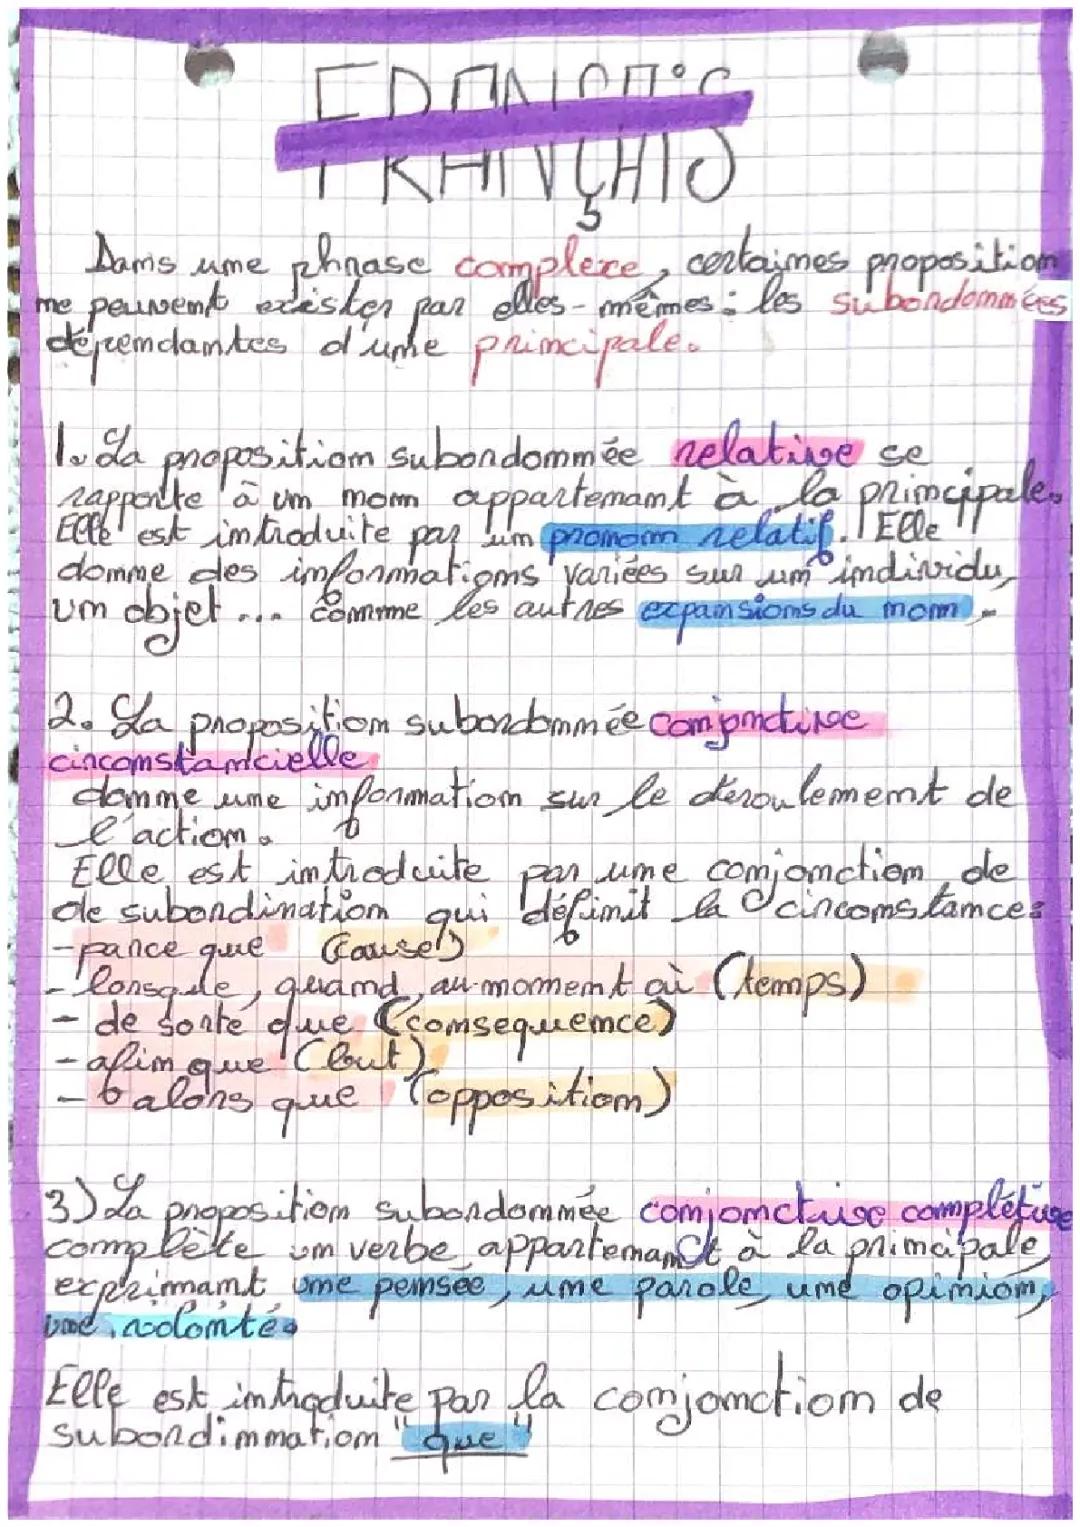 FRANÇAIS
Dans une phrase complexe, certaines proposition
ne peuvent exister par elles-mêmes : les subordonnées
dépendantes d'une principale.
1. La proposition subordonnée relative se
rapporte à un nom appartenant à la principale.
Elle est introduite par un pronom relatif. Elle
donne des informations variées sur un individu,
un objet... comme les autres expansions du nom.
2. La proposition subordonnée conjonctive
circonstancielle
donne une information sur le déroulement de
l'action.
Elle est introduite par une conjonction de
de subordination qui définit la circonstance:
- parce que (cause)
- lorsque, quand, au moment où (temps)
- de sorte que (consequence)
- afin que (but)
- alors que (opposition)
3) La proposition subordonnée conjonctive complétive
complète un verbe appartenant à la principale,
exprimant une pensée, une parole, une opinion,
une volonté.
Elle est introduite par la conjonction de
subordinnation "que"